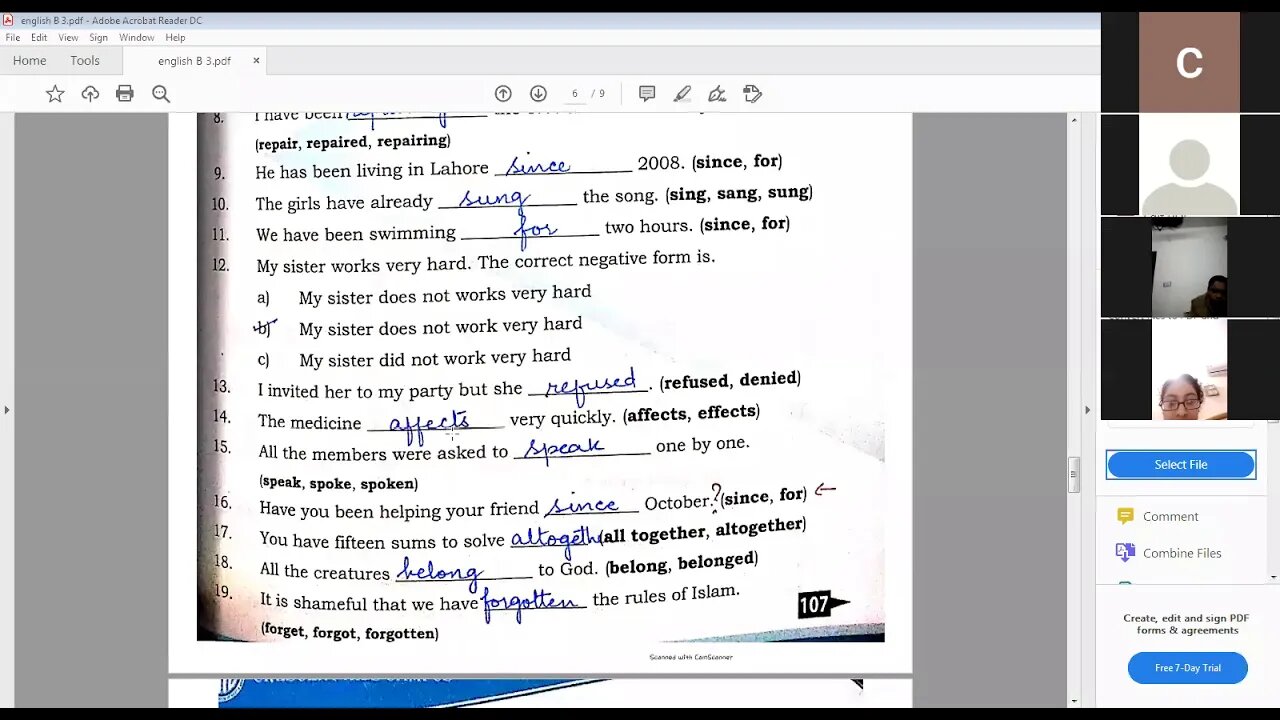 english B 3.pdf - Adobe Acrobat Reader DC
File Edit View Sign Window Help
Home Tools english B 3.pdf ×
6 / 9
8. I have been
(repair, repaired, repairing)
9. He has been living in Lahore since 2008. (since, for)
10. The girls have already sung the song. (sing, sang, sung)
11. We have been swimming for two hours. (since, for)
12. My sister works very hard. The correct negative form is.
a) My sister does not works very hard
b) My sister does not work very hard
c) My sister did not work very hard
13. I invited her to my party but she refused. (refused, denied)
14. The medicine affects very quickly. (affects, effects)
15. All the members were asked to speak one by one.
(speak, spoke, spoken)
16. Have you been helping your friend since October.? (since, for) ←
17. You have fifteen sums to solve altogeth (all together, altogether)
18. All the creatures belong to God. (belong, belonged)
19. It is shameful that we have forgotten the rules of Islam.
(forget, forgot, forgotten)
107
Scanned with CamScanner
C
Select File
Comment
Combine Files
Create, edit and sign PDF
forms & agreements
Free 7-Day Trial